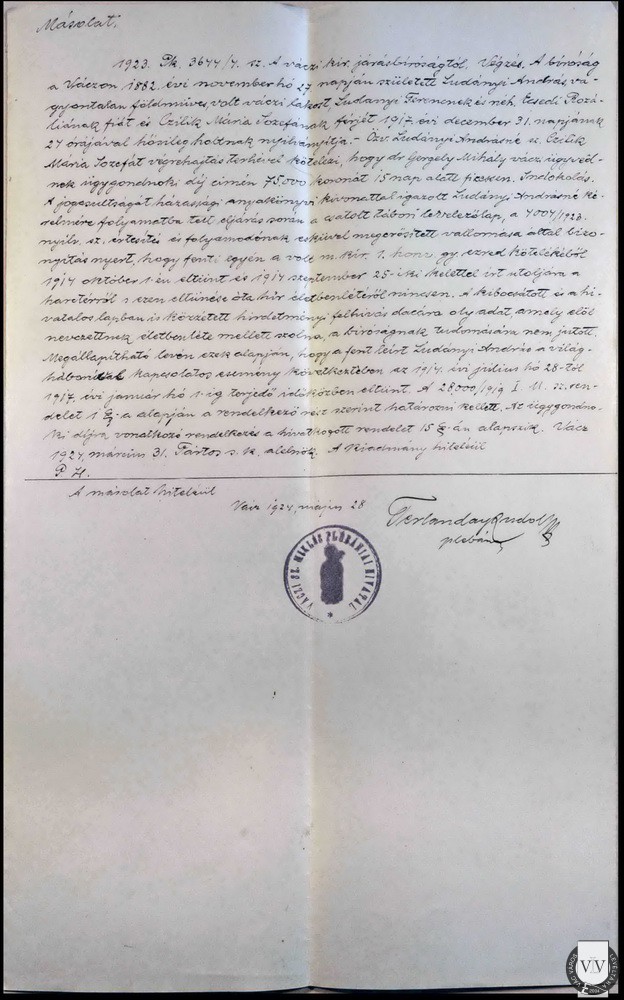 Másolat.
1923. Pk. 3644/7. sz. A váczi kir. járásbíróságtól. Végzés. A bíróság
a Váczon 1882. évi november hó 27 napján született Ludányi András va-
gyontalan földmüves, volt váczi lakost, Ludányi Ferencnek és néh. Ecsedi Rozá-
liának fiát és Czilik Mária Jozefának férjét 1917 évi december 31. napjának
24 órájával hősileg holtnak nyilvánítja. - Özv. Ludányi Andrásné sz. Czilik
Mária Jozefát végrehajtás terhével kötelezi, hogy dr Gergely Mihály váczi ügyvéd-
nek ügygondnoki díj címén 75.000 koronát 15 nap alatt fizessen. Indokolás.
A jogosultságát házassági anyakönyvi kivonattal igazolt Ludányi Andrásné ké-
relmére folyamatba tett eljárás során a csatolt tábori levelezőlap, a 4007/1923.
nyilv. sz. értesítés és folyamodónak esküvel megerősített vallomása által bizo-
nyítást nyert, hogy fenti egyén a volt m. kir. 1. honv. gy. ezred kötelékéből
1914 október 1-én eltünt és 1914 szeptember 25-iki kelettel írt utoljára a
harctérről s ezen eltünése óta hír életbenlétéről nincsen. A kibocsátott és a hi-
vatalos lapban is közzétett hirdetményi felhívás dacára oly adat, amely elől
nevezettnek életbenléte mellett szólna, a bíróságnak tudomására nem jutott.
Megállapítható lévén ezek alapján, hogy a fent leírt Ludányi András a világ-
háborúval kapcsolatos esemény következtében az 1914. évi július hó 28-tól
1917. évi január hó 1-ig terjedő időközben eltünt. A 28,000/1919 I. M. sz. ren-
delet 1 §-a alapján a rendelkező rész szerint határozni kellett. Az ügygondno-
ki díjra vonatkozó rendelkezés a hivatkozott rendelet 15 §-án alapszik. Vácz
1924. március 31. Pártos s. k. alelnök. A kiadmány hiteléül
P. H.
A másolat hiteléül
Vácz 1924, május 28
Terlanday Rudolf
plébános
VÁCZI SZ. MIKLÓS PLÉBÁNIAI HIVATAL
VÁC VÁROS LEVÉLTÁRA
VVL